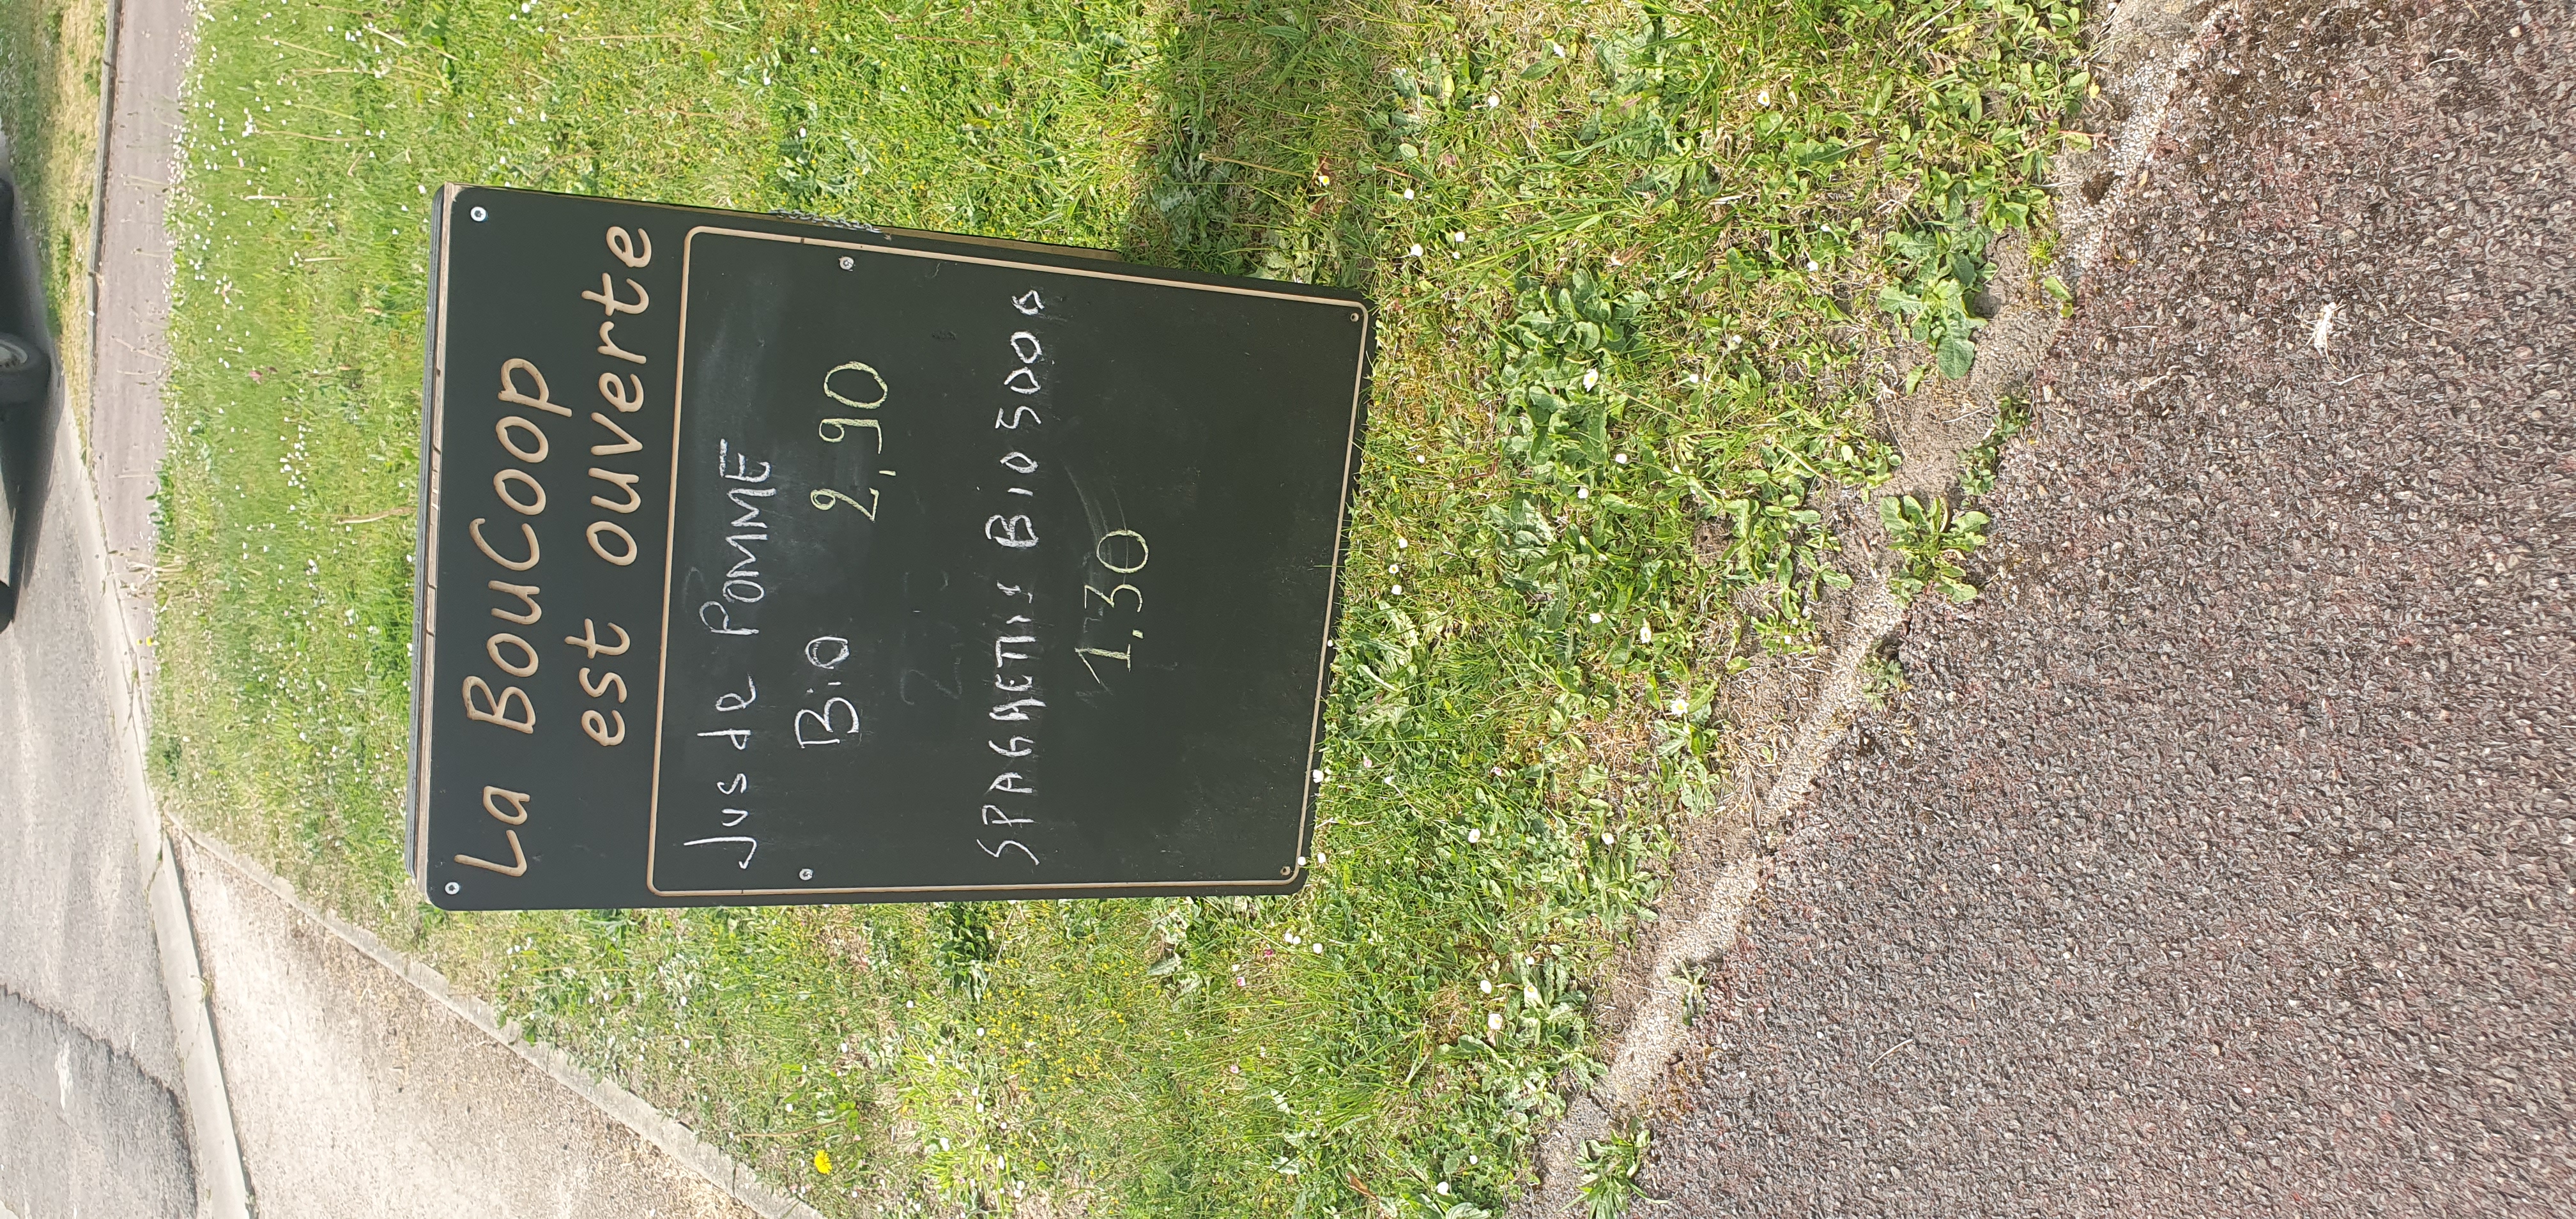 La BouCoop
est ouverte
Jus de POMME
Bio 2,90
SPAGHETTIS Bio 500g
1,30